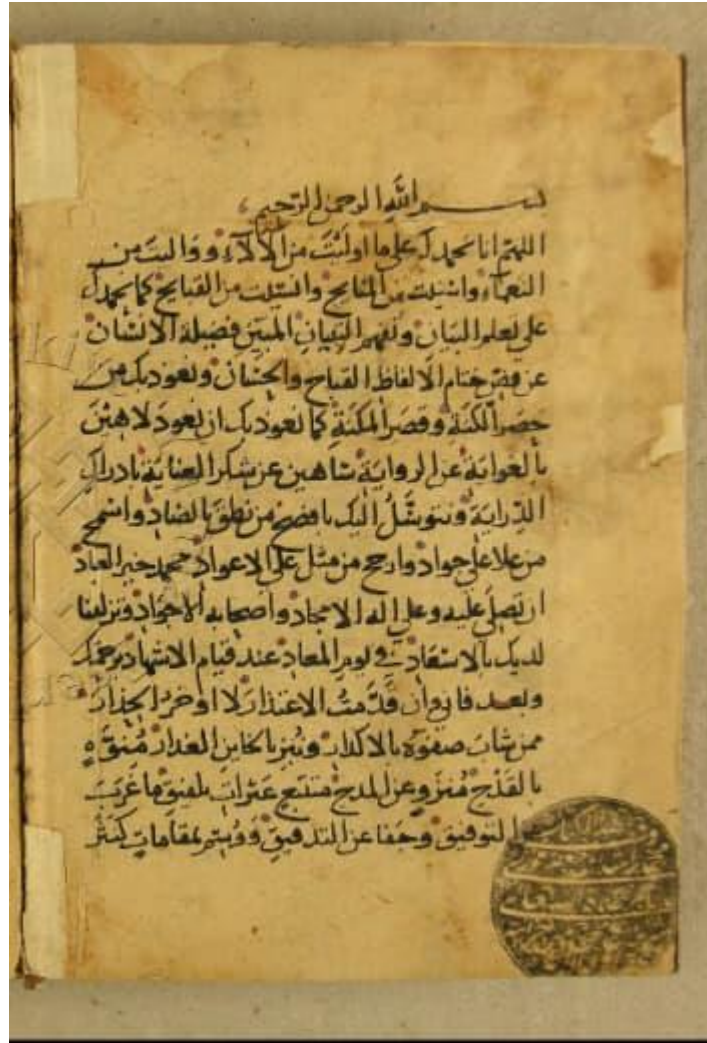 بسم الله الرحمن الرحيم
اللهم انا نحمدك على ما اوليت من الالاء وواليت من
النعماء واسبلت من المنايح من القبايح كما نحمدك
على تعلم البيان وتفهم التبيان المبين فضيلة الانسان
عن فض ختام الالفاظ القباح والحسان ونعوذ بك من
حصر الكنة وقصر المكنة كما نعوذ بك ان نعود لاهين
بالغواية عن الرواية ساهين عن شكر العناية بادراك
الدراية ونتوسل اليك بافصح من نطق بالضاد واسمح
من علا على جواد وارجح من مثل على الاعواد محمد خير العباد
ان تصلي عليه وعلى اله الامجاد واصحابه الاجواد
لديك بالاسعاد في يوم المعاد عند قيام الاشهاد برحمتك
وبعد فاني وان قدمت الاعتذار لا اوخر الحذار
ممن شاب صفوه بالاكدار الغدار متفوه
بالقدح منزو عن المدح متتبع عثرات
التوفيق وجفا عن التدقيق بمقامات